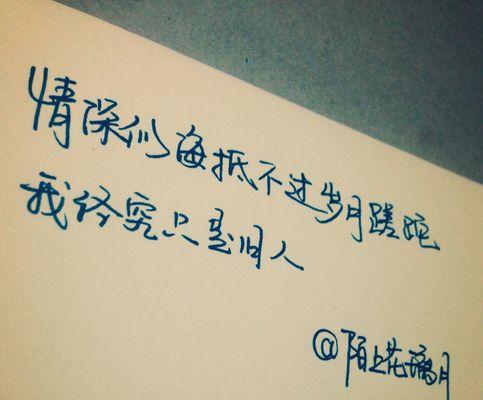 情深似海抵不过岁月蹉跎
我终究只是旧人
@陌上花璃月